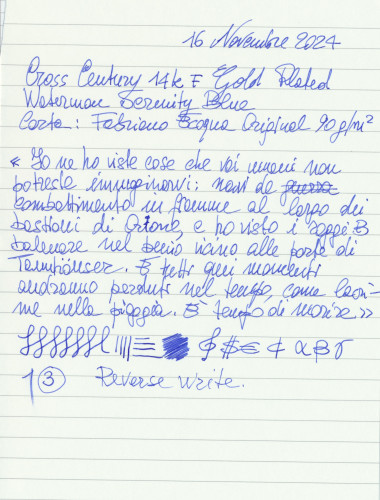 16 Novembre 2024
Cross Century 14k F Gold Plated
Waterman Serenity Blue
Carta: Fabriano Ecoqua Original 90 g/m²
« Io ne ho viste cose che voi umani non
potreste immaginarvi: navi da guerra
combattimento in fiamme al largo dei
bastioni di Orione, e ho visto i raggi B
balenare nel buio vicino alle porte di
Tannhäuser. E tutti quei momenti
andranno perduti nel tempo, come lacri-
me nella pioggia. È tempo di morire »
$ € ¢ α β γ
1 3 Reverse write.